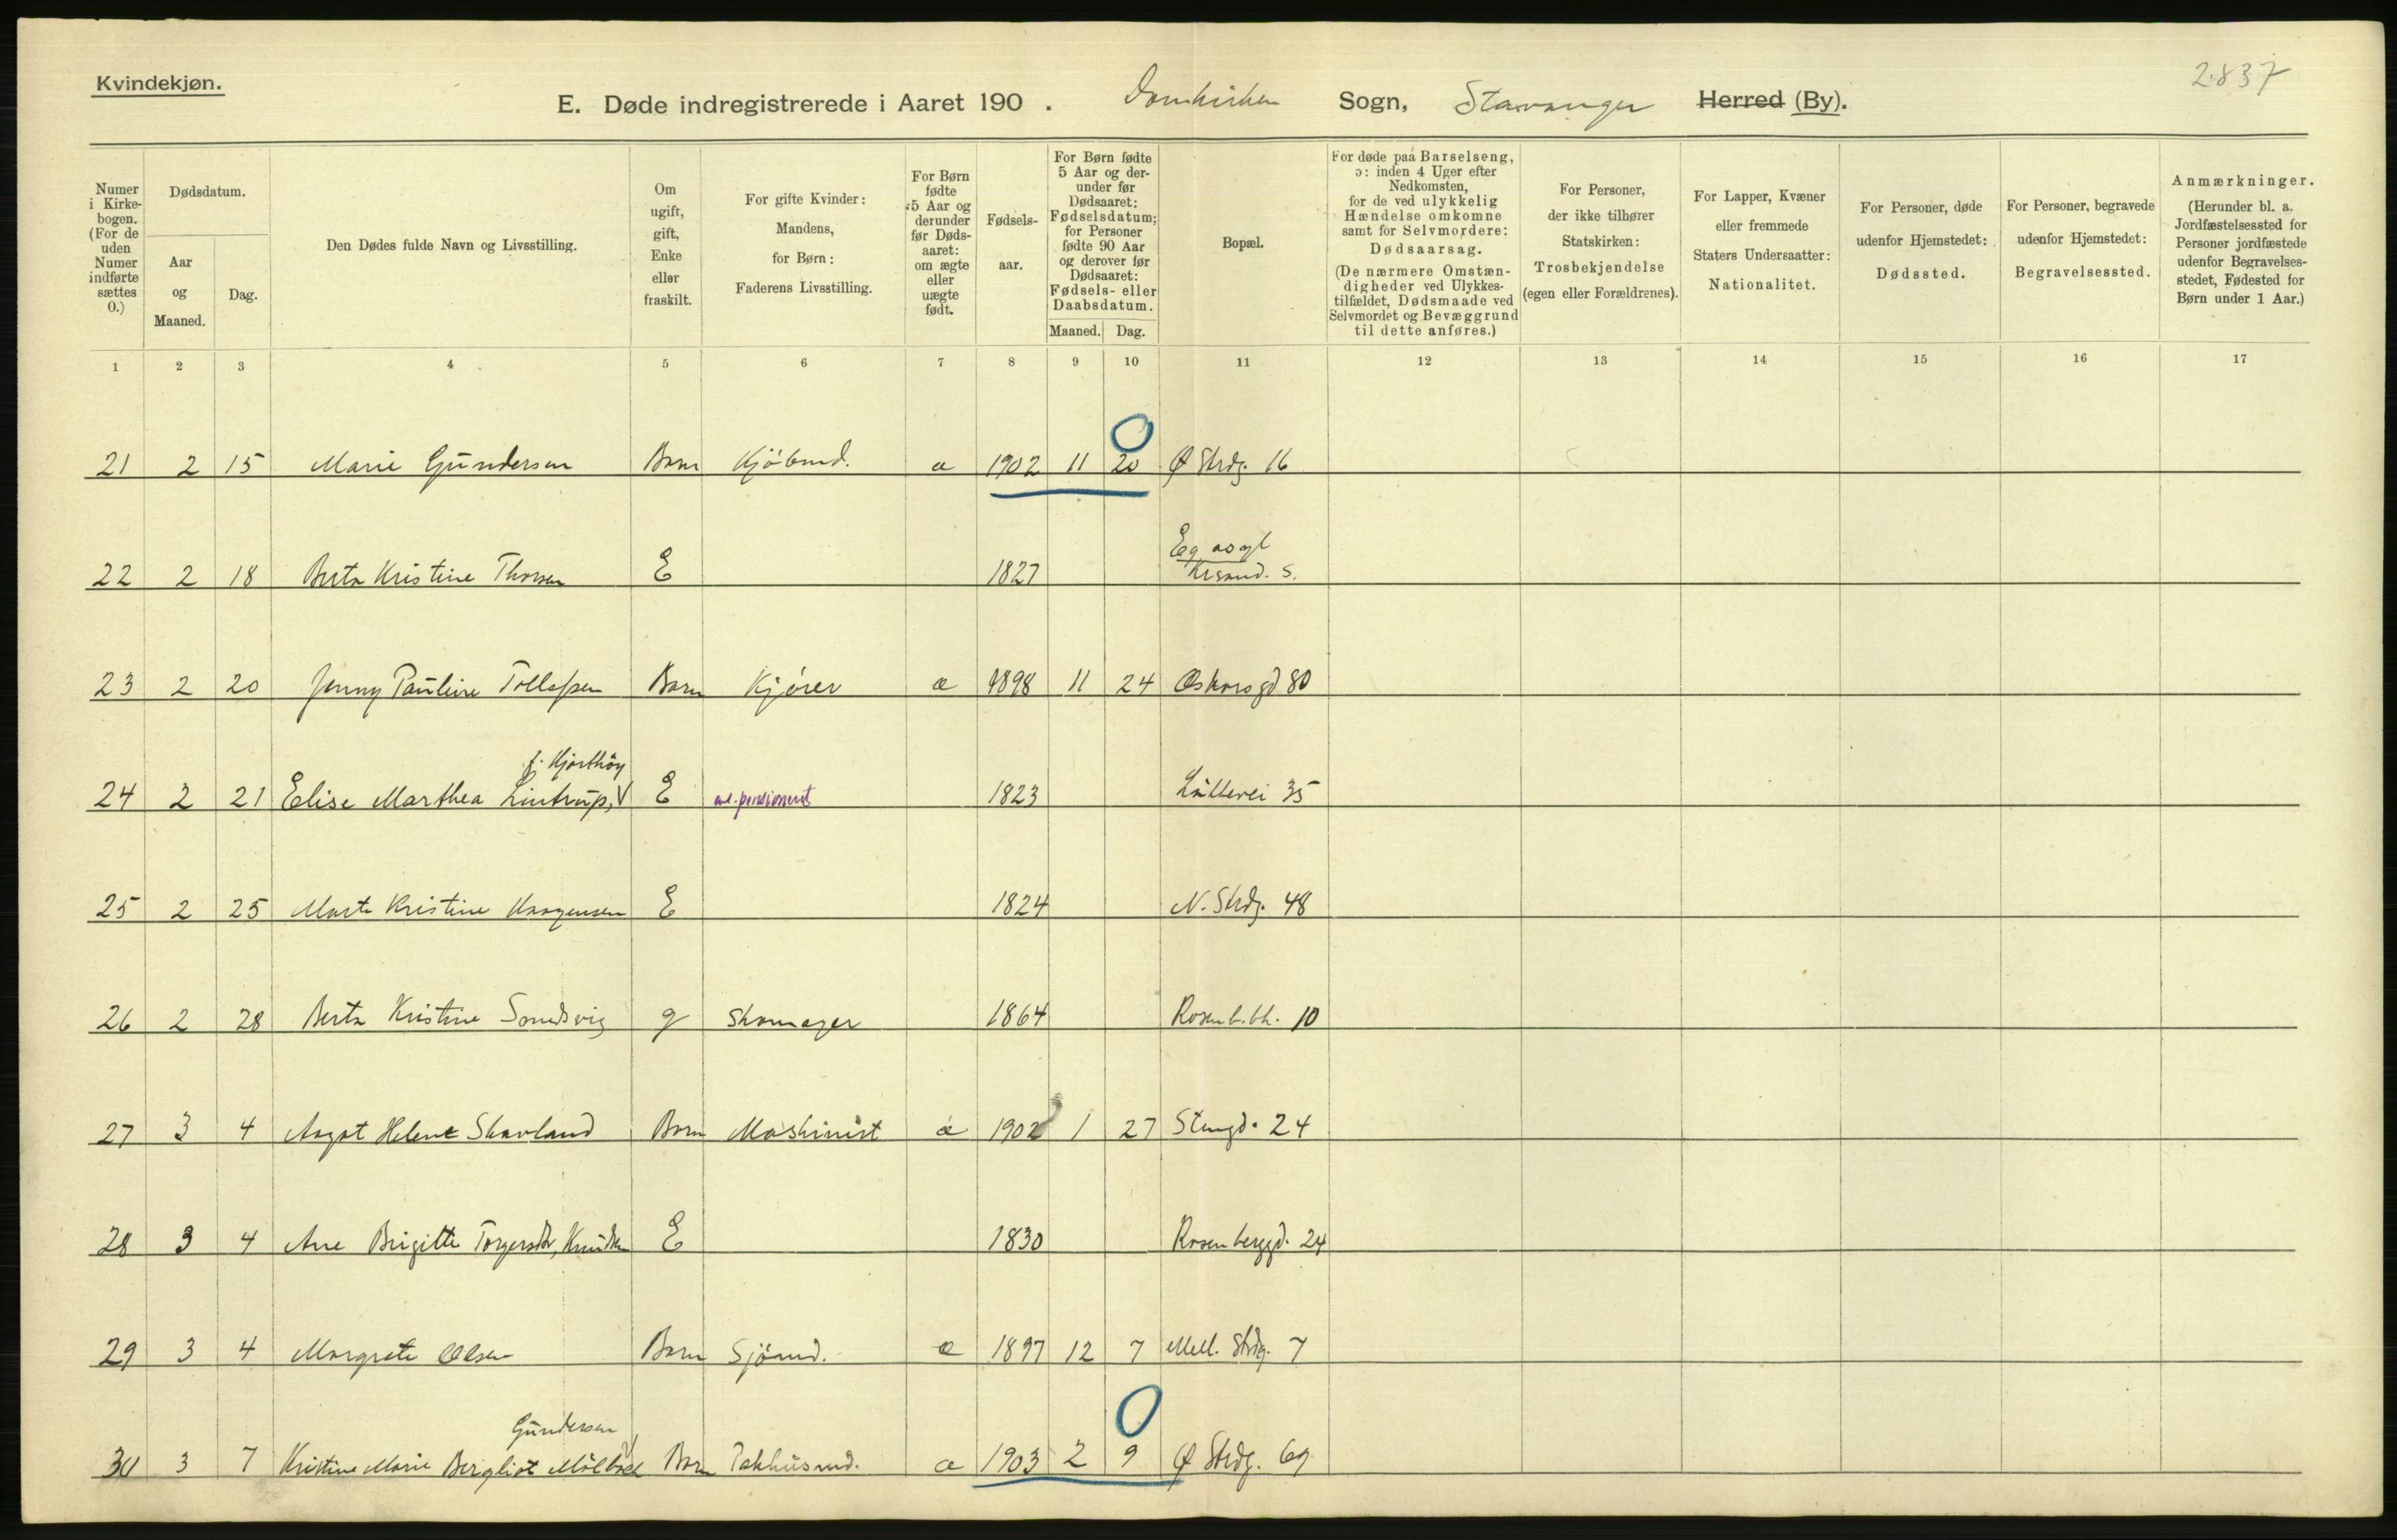 Kvindekjøn.
2837
E. Døde indregistrerede i Aaret 190 . Domkirken Sogn, Stavanger Herred (By).
Numer i Kirkebogen. (For de uden Numer indførte sættes 0.)
Dødsdatum.
Aar og Maaned.
Dag.
Den Dødes fulde Navn og Livsstilling.
Om ugift, gift, Enke eller fraskilt.
For gifte Kvinder: Mandens, for Børn: Faderens Livsstilling.
For Børn fødte 5 Aar og derunder før Dødsaaret: om ægte eller uægte født.
Fødselsaar.
For Børn fødte 5 Aar og derunder før Dødsaaret: Fødselsdatum; for Personer fødte 90 Aar og derover før Dødsaaret: Fødsels- eller Daabsdatum.
Maaned. Dag.
Bopæl.
For døde paa Barselseng, ɔ: inden 4 Uger efter Nedkomsten, for de ved ulykkelig Hændelse omkomne samt for Selvmordere: Dødsaarsag. (De nærmere Omstændigheder ved Ulykkestilfældet, Dødsmaade ved Selvmordet og Bevæggrund til dette anføres.)
For Personer, der ikke tilhører Statskirken: Trosbekjendelse (egen eller Forældrenes).
For Lapper, Kvæner eller fremmede Staters Undersaatter: Nationalitet.
For Personer, døde udenfor Hjemstedet: Dødssted.
For Personer, begravede udenfor Hjemstedet: Begravelsessted.
Anmærkninger. (Herunder bl. a. Jordfæstelsessted for Personer jordfæstede udenfor Begravelsesstedet, Fødested for Børn under 1 Aar.)
1 2 3 4 5 6 7 8 9 10 11 12 13 14 15 16 17
21 2 15 Marie Gundersen Barn Kjøbmd. æ 1902 11 20 Ø Strdg. 16
0
Eg asyl
22 2 18 Berta Kristine Thorsen E 1827 Krsand. S.
23 2 20 Jenny Pauline Tollefsen Barn Kjører æ 1898 11 24 Oskarsgd 80
f. Kjorthöy
24 2 21 Elise Marthea Lintrup, E 1823 35
25 2 25 Marte Kristine E 1824 N. Strdg. 48
26 2 28 Berta Kristine Sandsvig g Skomager 1864 Rosenb.bk. 10
27 3 4 Aagot Helene Skavland Barn Maskinist æ 1902 1 27 24
28 3 4 Ane Brigitte Torgersdtr, Knudsen E 1830 Rosenberggd. 24
29 3 4 Margrete Olsen Barn Sjömd. æ 1897 12 7 Mell. Strdg. 7
Gundersen
0
30 3 7 Kristine Marie Bergliot Barn Pakhusmd. æ 1903 2 9 Ø Strdg. 69